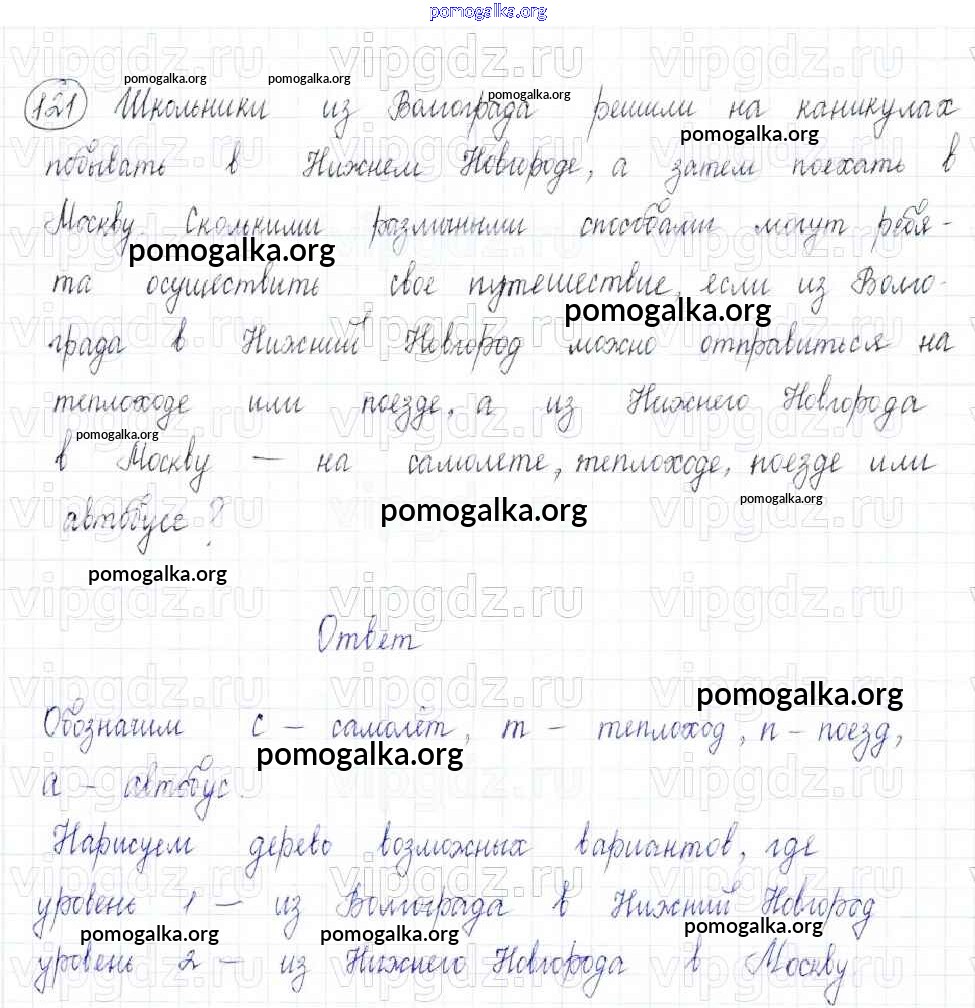 pomogalka.org
pomogalka.org pomogalka.org pomogalka.org
121 Школьники из Волгограда решили на каникулах
pomogalka.org
побывать в Нижнем Новгороде, а затем поехать в
Москву. Сколькими различными способами могут ребя-
pomogalka.org
та осуществить свое путешествие, если из Волго-
pomogalka.org
града в Нижний Новгород можно отправиться на
теплоходе или поезде, а из Нижнего Новгорода
pomogalka.org
в Москву — на самолете, теплоходе, поезде или
pomogalka.org
автобусе?
pomogalka.org
pomogalka.org
vipgdz.ru vipgdz.ru vipgdz.ru
Ответ
pomogalka.org
Обозначим с – самолёт, т – теплоход, п – поезд,
pomogalka.org
а – автобус.
Нарисуем дерево возможных вариантов, где
уровень 1 – из Волгограда в Нижний Новгород
pomogalka.org pomogalka.org pomogalka.org
уровень 2 – из Нижнего Новгорода в Москву.